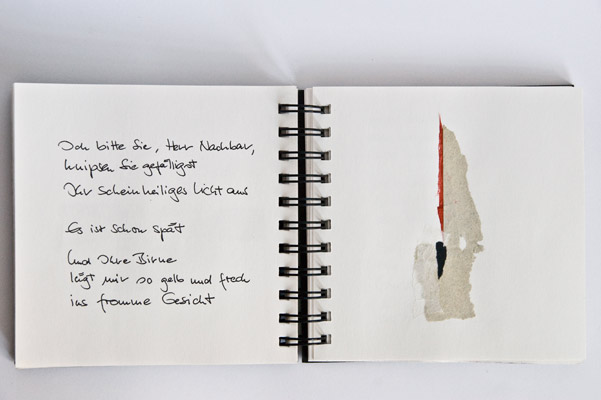 Ich bitte Sie, Herr Nachbar,
knipsen Sie gefälligst
Ihr scheinheiliges Licht aus
Es ist schon spät
Und Ihre Birne
lügt mir so gelb und frech
ins fromme Gesicht